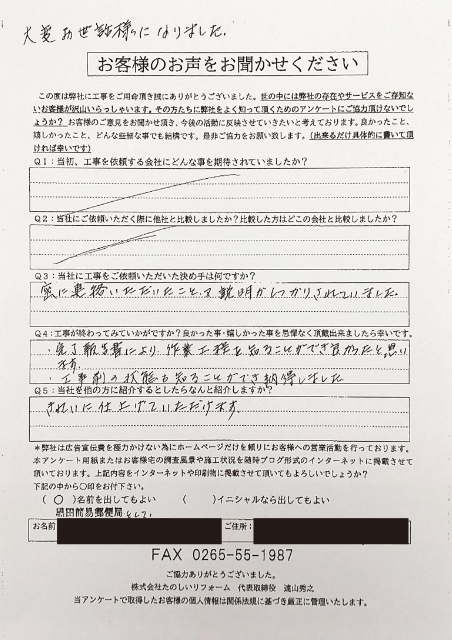 大変お世話様になりました。
お客様のお声をお聞かせください
この度は弊社に工事をご用命頂き誠にありがとうございました。世の中には弊社の存在やサービスをご存知
ないお客様が沢山いらっしゃいます。その方たちに弊社をよく知って頂くためのアンケートにご協力頂けないでし
ょうか？お客様のご意見をお聞かせ頂き、今後の活動に反映させていきたいと考えております。良かったこと、
嬉しかったこと、どんな些細な事でも結構です。是非ご協力をお願い致します。(出来るだけ具体的に書いて頂
ければ幸いです)
Q1：当初、工事を依頼する会社にどんな事を期待されていましたか？
Q2：当社にご依頼いただく際に他社と比較しましたか？比較した方はどこの会社と比較しましたか？
Q3：当社に工事をご依頼いただいた決め手は何ですか？
密に連絡いただいたこと、説明がしっかりされていました。
Q4：工事が終わってみていかがですか？良かった事・嬉しかった事を忌憚なく頂戴出来ましたら幸いです。
・完了報告書により、作業工程を知ることができ良かったと思い
ます。
・工事前の状態も知ることができ納得しました
Q5：当社を他の方に紹介するとしたらなんと紹介しますか？
きれいに仕上げていただけます。
＊弊社は広告宣伝費を極力かけない為にホームページだけを頼りにお客様への営業活動を行っております。
本アンケート用紙またはお客様宅の調査風景や施工状況を随時ブログ形式のインターネットに掲載させて
頂いております。上記内容をインターネットや印刷物に掲載させて頂いてもよろしいでしょうか？
下記の中から〇印をお付け下さい。
(○)名前を出してもよい ( )イニシャルなら出してもよい
黒田簡易郵便局として
お名前 ご住所：
FAX 0265-55-1987
ご協力ありがとうございました。
株式会社たのしいリフォーム 代表取締役 遠山秀之
当アンケートで取得したお客様の個人情報は関係法規に基づき厳正に管理いたします。